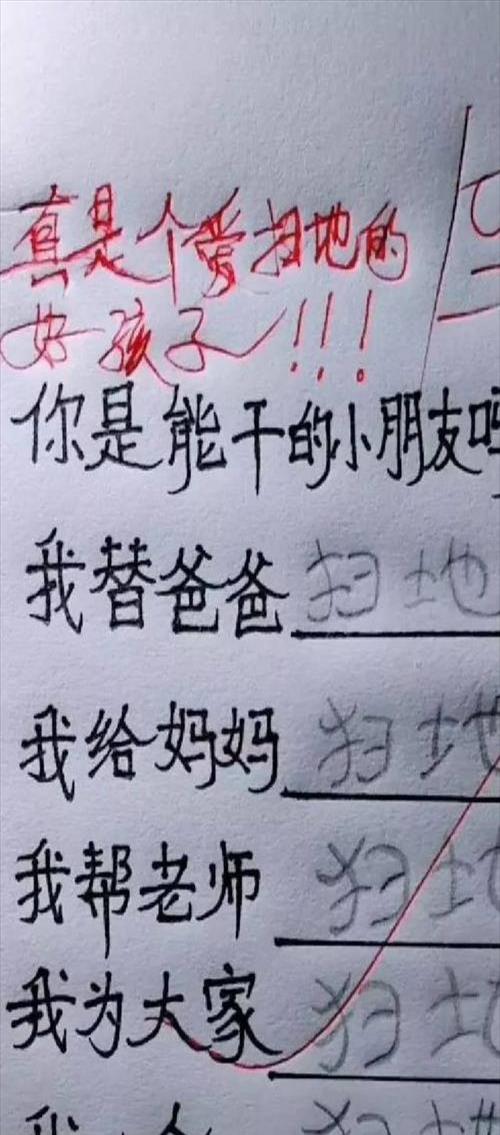 真是个爱扫地的
好孩子!!!
你是能干的小朋友吗
我替爸爸扫地
我给妈妈扫地
我帮老师扫地
我为大家扫地